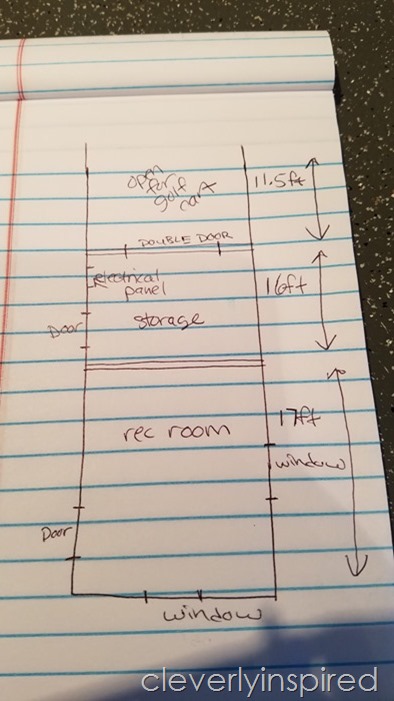 open
for
golf
cart
11.5ft
DOUBLE DOOR
electrical
panel
16ft
Door
storage
rec room
17ft
window
Door
window
cleverlyinspired